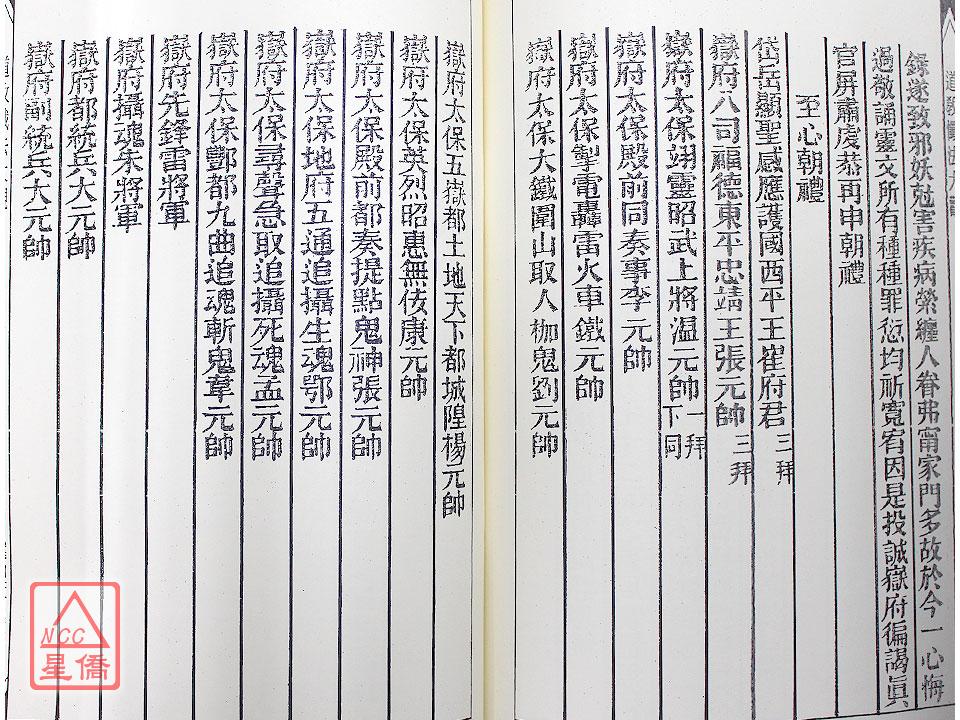 錄遂致邪妖尅害疾病縈纏人眷弗甯家門多故於今一心悔
過敬誦靈文所有種種罪愆均祈寬宥因是投誠嶽府徧謁眞
官屏肅虔恭再申朝禮
至心朝禮
岱岳顯聖感應護國西平王崔府君三拜
嶽府八司福德東平忠靖王張元帥三拜
嶽府太保翊靈昭武上將温元帥一拜下同
嶽府太保殿前同奏事李元帥
嶽府太保掣電轟雷火車鐵元帥
嶽府太保大鐵圍山取人枷鬼劉元帥
嶽府太保五嶽都土地天下都城隍楊元帥
嶽府太保英烈昭惠無佞康元帥
嶽府太保殿前都奏提點鬼神張元帥
嶽府太保地府五通追攝生魂鄂元帥
嶽府太保尋聲急取追攝死魂孟元帥
嶽府太保酆都九曲追魂斬鬼韋元帥
嶽府先鋒雷將軍
嶽府攝魂朱將軍
嶽府都統兵大元帥
嶽府副統兵大元帥
NCC
星僑